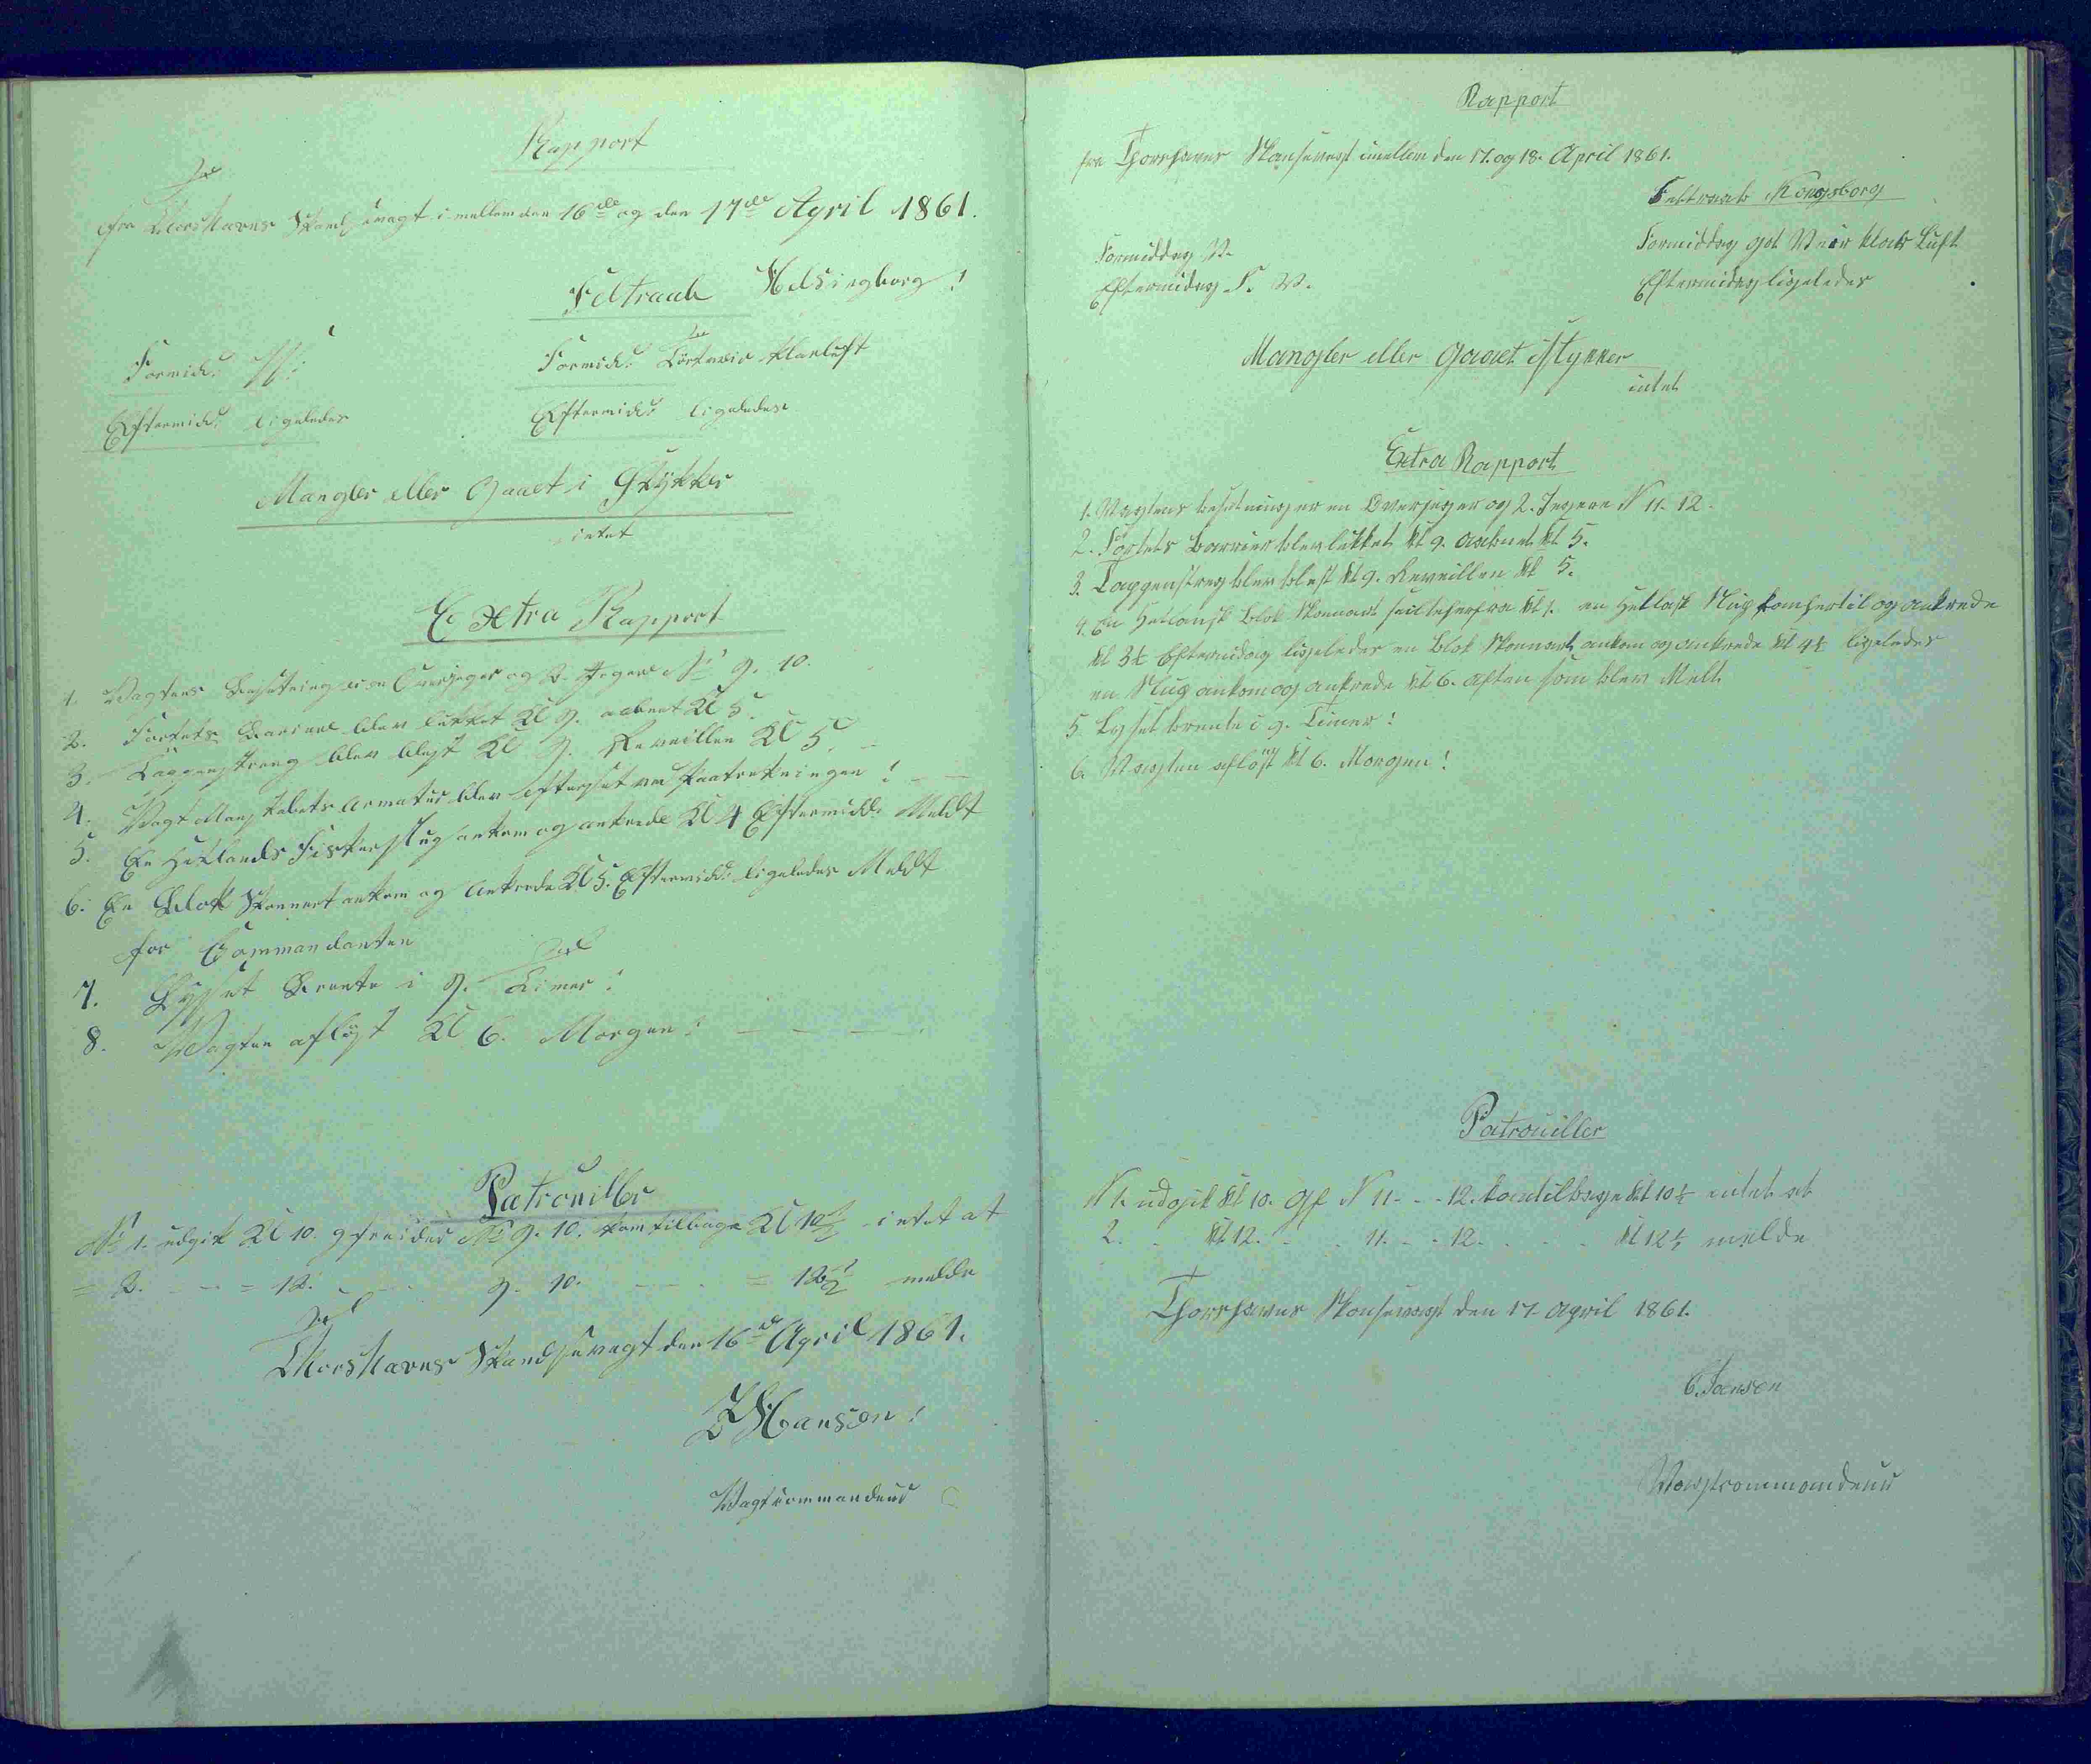 Rapport
fra Thorshavns Skandsevagt imellem den 16de og den 17de April 1861.
Feltraab Helsingborg!
Formid: W:
Formid: Tørt veir klarluft
Eftermid: ligeledes
Eftermid: ligeledes
Mangler eller Gaaet i Stykker
intet
Extra Rapport
1. Vagtens Besætning er en Overjæger og 2. Jegere No 9. 10.
2. Fortets Bariere blev lukket Kl 9. aabnet Kl 5.
3. Tappenstreg blev blæst Kl 9. Reveillen Kl 5.
4. Vagt Mandskabets armatur blev efterset ved Paatrækningen!
5. En Hetlands Fisker Slup ankom og ankrede Kl 4 Eftermidd: Meldt
6. En Blok Skonnert ankom og ankrede Kl 5. Eftermidd: ligeledes Meldt
for Commandanten
7. Lyset Brente i 9. Timer!
8. Vagten afløst Kl 6. Morgen!
Patrouiller
No 1. udgik Kl 10. gefreider No 9. 10. kom tilbage Kl 10½ intet at
= 2. = 12. 9. 10. = 12½ melde
Thorshavns Skandsevagt den 16de April 1861.
Hansen!
Vagtcommandeur
Rapport
fra Thorshavns Skansevagt imellem den 17. og 18. April 1861.
Feltraab Kongsborg
Formiddag W.
Formiddag got Veir klar Luft
Eftermidag S. W.
Eftermidag ligeledes
Mangler eller Gaaet i Stykker
intet
Extra Rapport
1. Vagtens besetning er en Overjeger og 2. Jegere N 11. 12.
2. Fortets Barrier blev lukket kl 9. aabnet kl 5.
3. Tappenstreg blev blest kl 9. Reveillen kl 5.
4. En Hetlansk Blok Skonnert seilte herfra kl 1. en Hetlask Slup kom hertil og ankrede
kl 3½ Eftermidag ligeledes en Blok Skonnert ankom og ankrede kl 4½ ligeledes
en Slup ankom og ankrede kl 6. aften som blev Melt.
5. Lyset brente i 9. Timer!
6. Vagten afløst kl 6. Morgen!
Patrouiller
N 1. udgik kl 10. Gf N 11. - - 12. kom tilbage kl 10½ intet at
2. kl 12. 11. - - 12. kl 12½ melde
Thorshavns Skansevagt den 17 April 1861.
C. Joensen
Vagtcommandeur